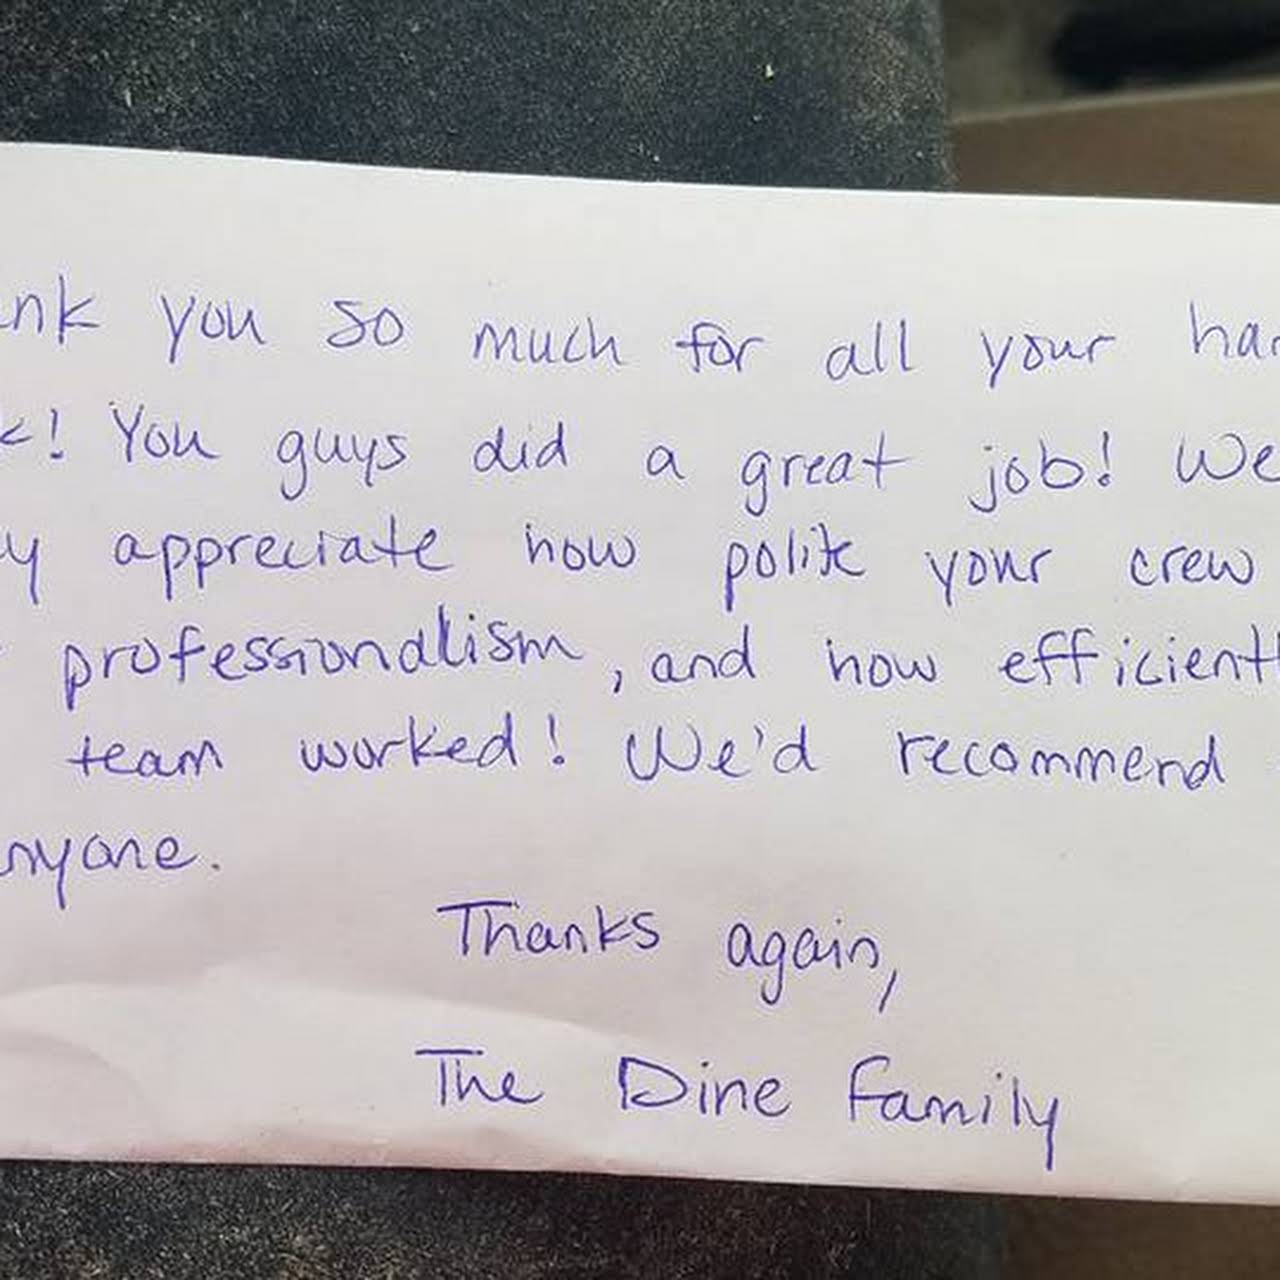 nk you so much for all your har
k! You guys did a great job! We
y appreciate how polite your crew
professionalism, and how efficientl
team worked! We'd recommend
nyone.
Thanks again,
The Dine Family